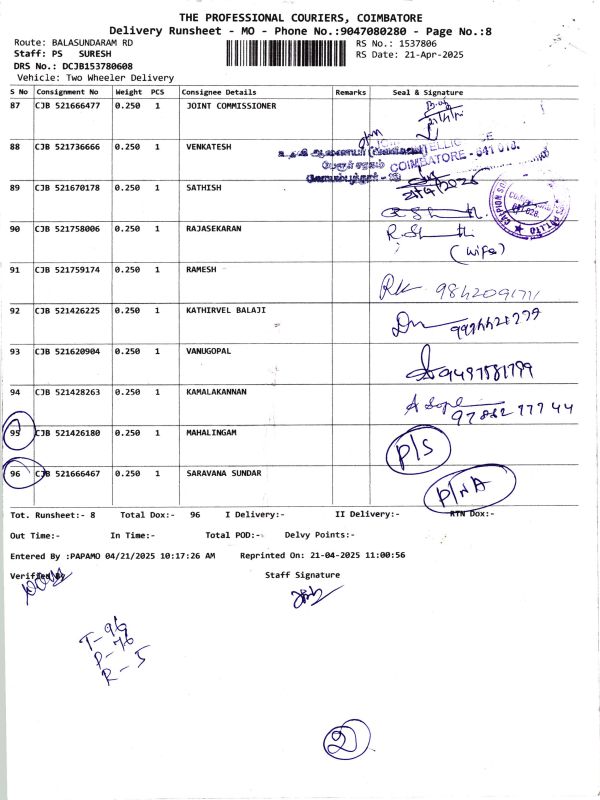 THE PROFESSIONAL COURIERS, COIMBATORE
Delivery Runsheet - MO - Phone No.:9047080280 - Page No.:8
Route: BALASUNDARAM RD
RS No.: 1537806
Staff: PS SURESH
RS Date: 21-Apr-2025
DRS No.: DCJB153780608
Vehicle: Two Wheeler Delivery
S No Consignment No Weight PCS Consignee Details Remarks Seal & Signature
87 CJB 521666477 0.250 1 JOINT COMMISSIONER
88 CJB 521736666 0.250 1 VENKATESH
COIMBATORE - 641 018.
89 CJB 521670178 0.250 1 SATHISH
90 CJB 521758006 0.250 1 RAJASEKARAN
(wife)
91 CJB 521759174 0.250 1 RAMESH
92 CJB 521426225 0.250 1 KATHIRVEL BALAJI
93 CJB 521620904 0.250 1 VANUGOPAL
94 CJB 521428263 0.250 1 KAMALAKANNAN
95 CJB 521426180 0.250 1 MAHALINGAM P/S
96 CJB 521666467 0.250 1 SARAVANA SUNDAR P/NA
Tot. Runsheet:- 8 Total Dox:- 96 I Delivery:- II Delivery:- RTN Dox:-
Out Time:- In Time:- Total POD:- Delvy Points:-
Entered By :PAPAMO 04/21/2025 10:17:26 AM Reprinted On: 21-04-2025 11:00:56
Verified By Staff Signature
T-96
P-76
R-5
2